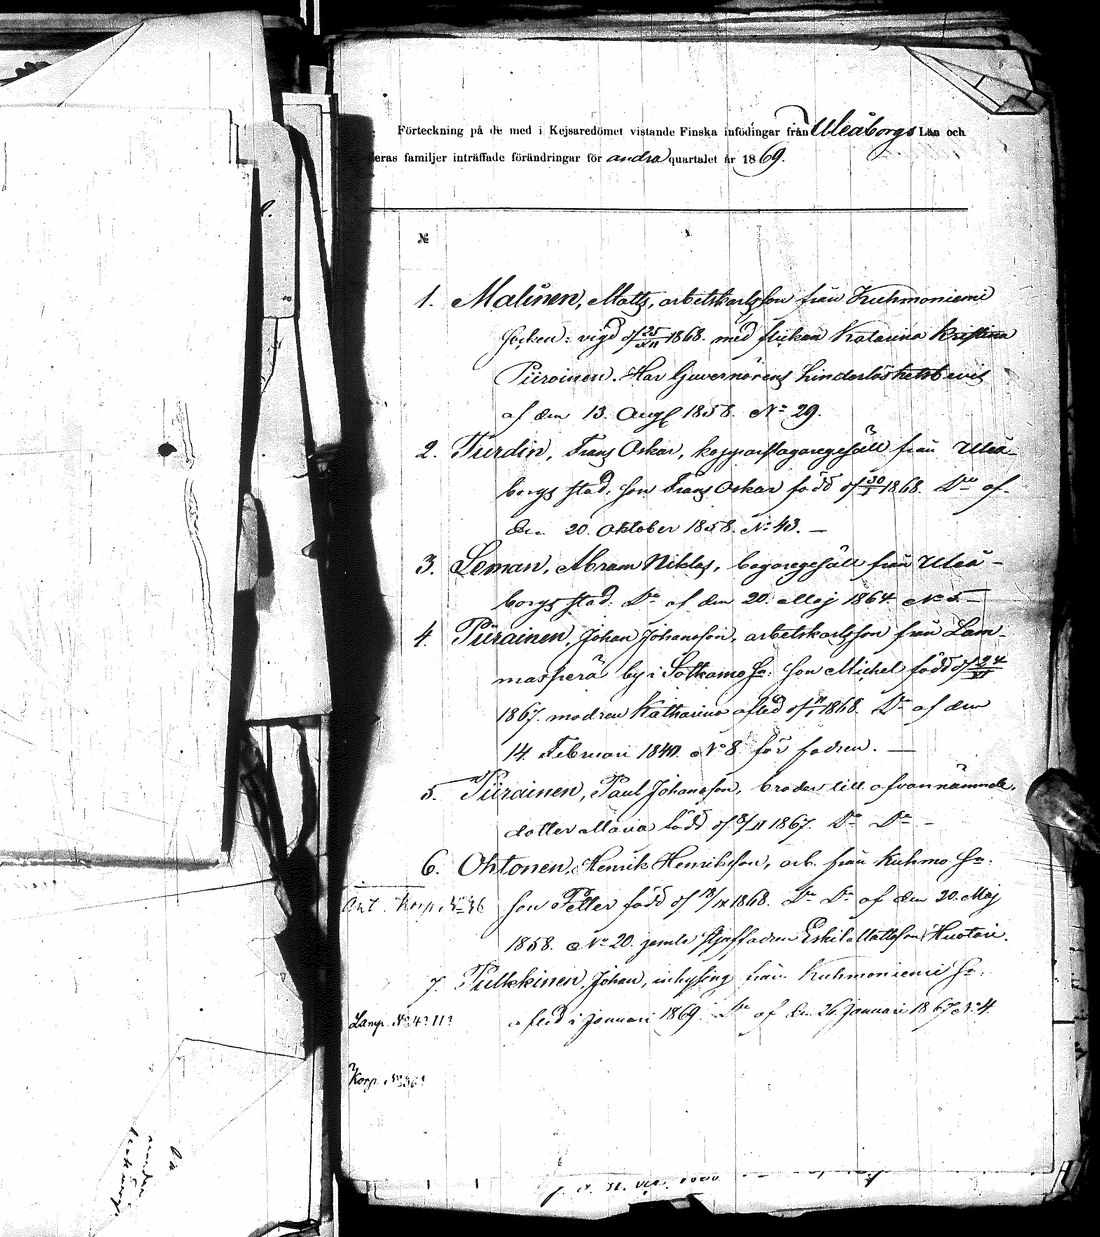 Förteckning på de med i Kejsaredömet vistande Finska infödingar från Uleåborgs Län och
eras familjer inträffade förändringar för andra quartalet år 1869.
№
1. Malinen, Matts, arbetskarlsson från Kuhmoniemi
Socken: vigd d 25/XII 1868. med flickan Katarina Kristina
Piiroinen. Har Guvernörens hinderlöshetsbevis
af den 13. Aug 1858. No 29.
2. Turdin, Frans Oskar, kopparslagaregesäll från Uleå-
borgs stad, son Frans Oskar född d 30/X 1868. Do af
den 20. Oktober 1858. No 43. —
3. Leman, Abram Niklas, bagaregesäll från Uleå-
borgs stad. Do af den 20. Maj 1864. No 5. —
4. Piirainen, Johan Johansson, arbetskarlsson från Lam-
masperä by i Sotkamo Sn. Son Michel född d 24/XI
1867. modren Katharina afled d 1868. Do af den
14. Februari No 8 för fadren. —
5. Piirainen, Paul Johansson, broder till ofvannämnde.
dotter Maria född d 8/II 1867. Do Do —
6. Ohtonen, Henrik Henriksson, arb. från Kuhmo Sn.
Ant. Korp. No 46 son Petter född d 18/IX 1868. Do Do af den 20. Maj
1858. No 20. jemte styffadren Eskil Mattsson Huotari.
7. Pulkkinen, Johan, inhysing från Kuhmoniemi Sn.
Lamp. No afled i Januari 1869. Do af den 26 Januari 1867 No 4.
Korp. No